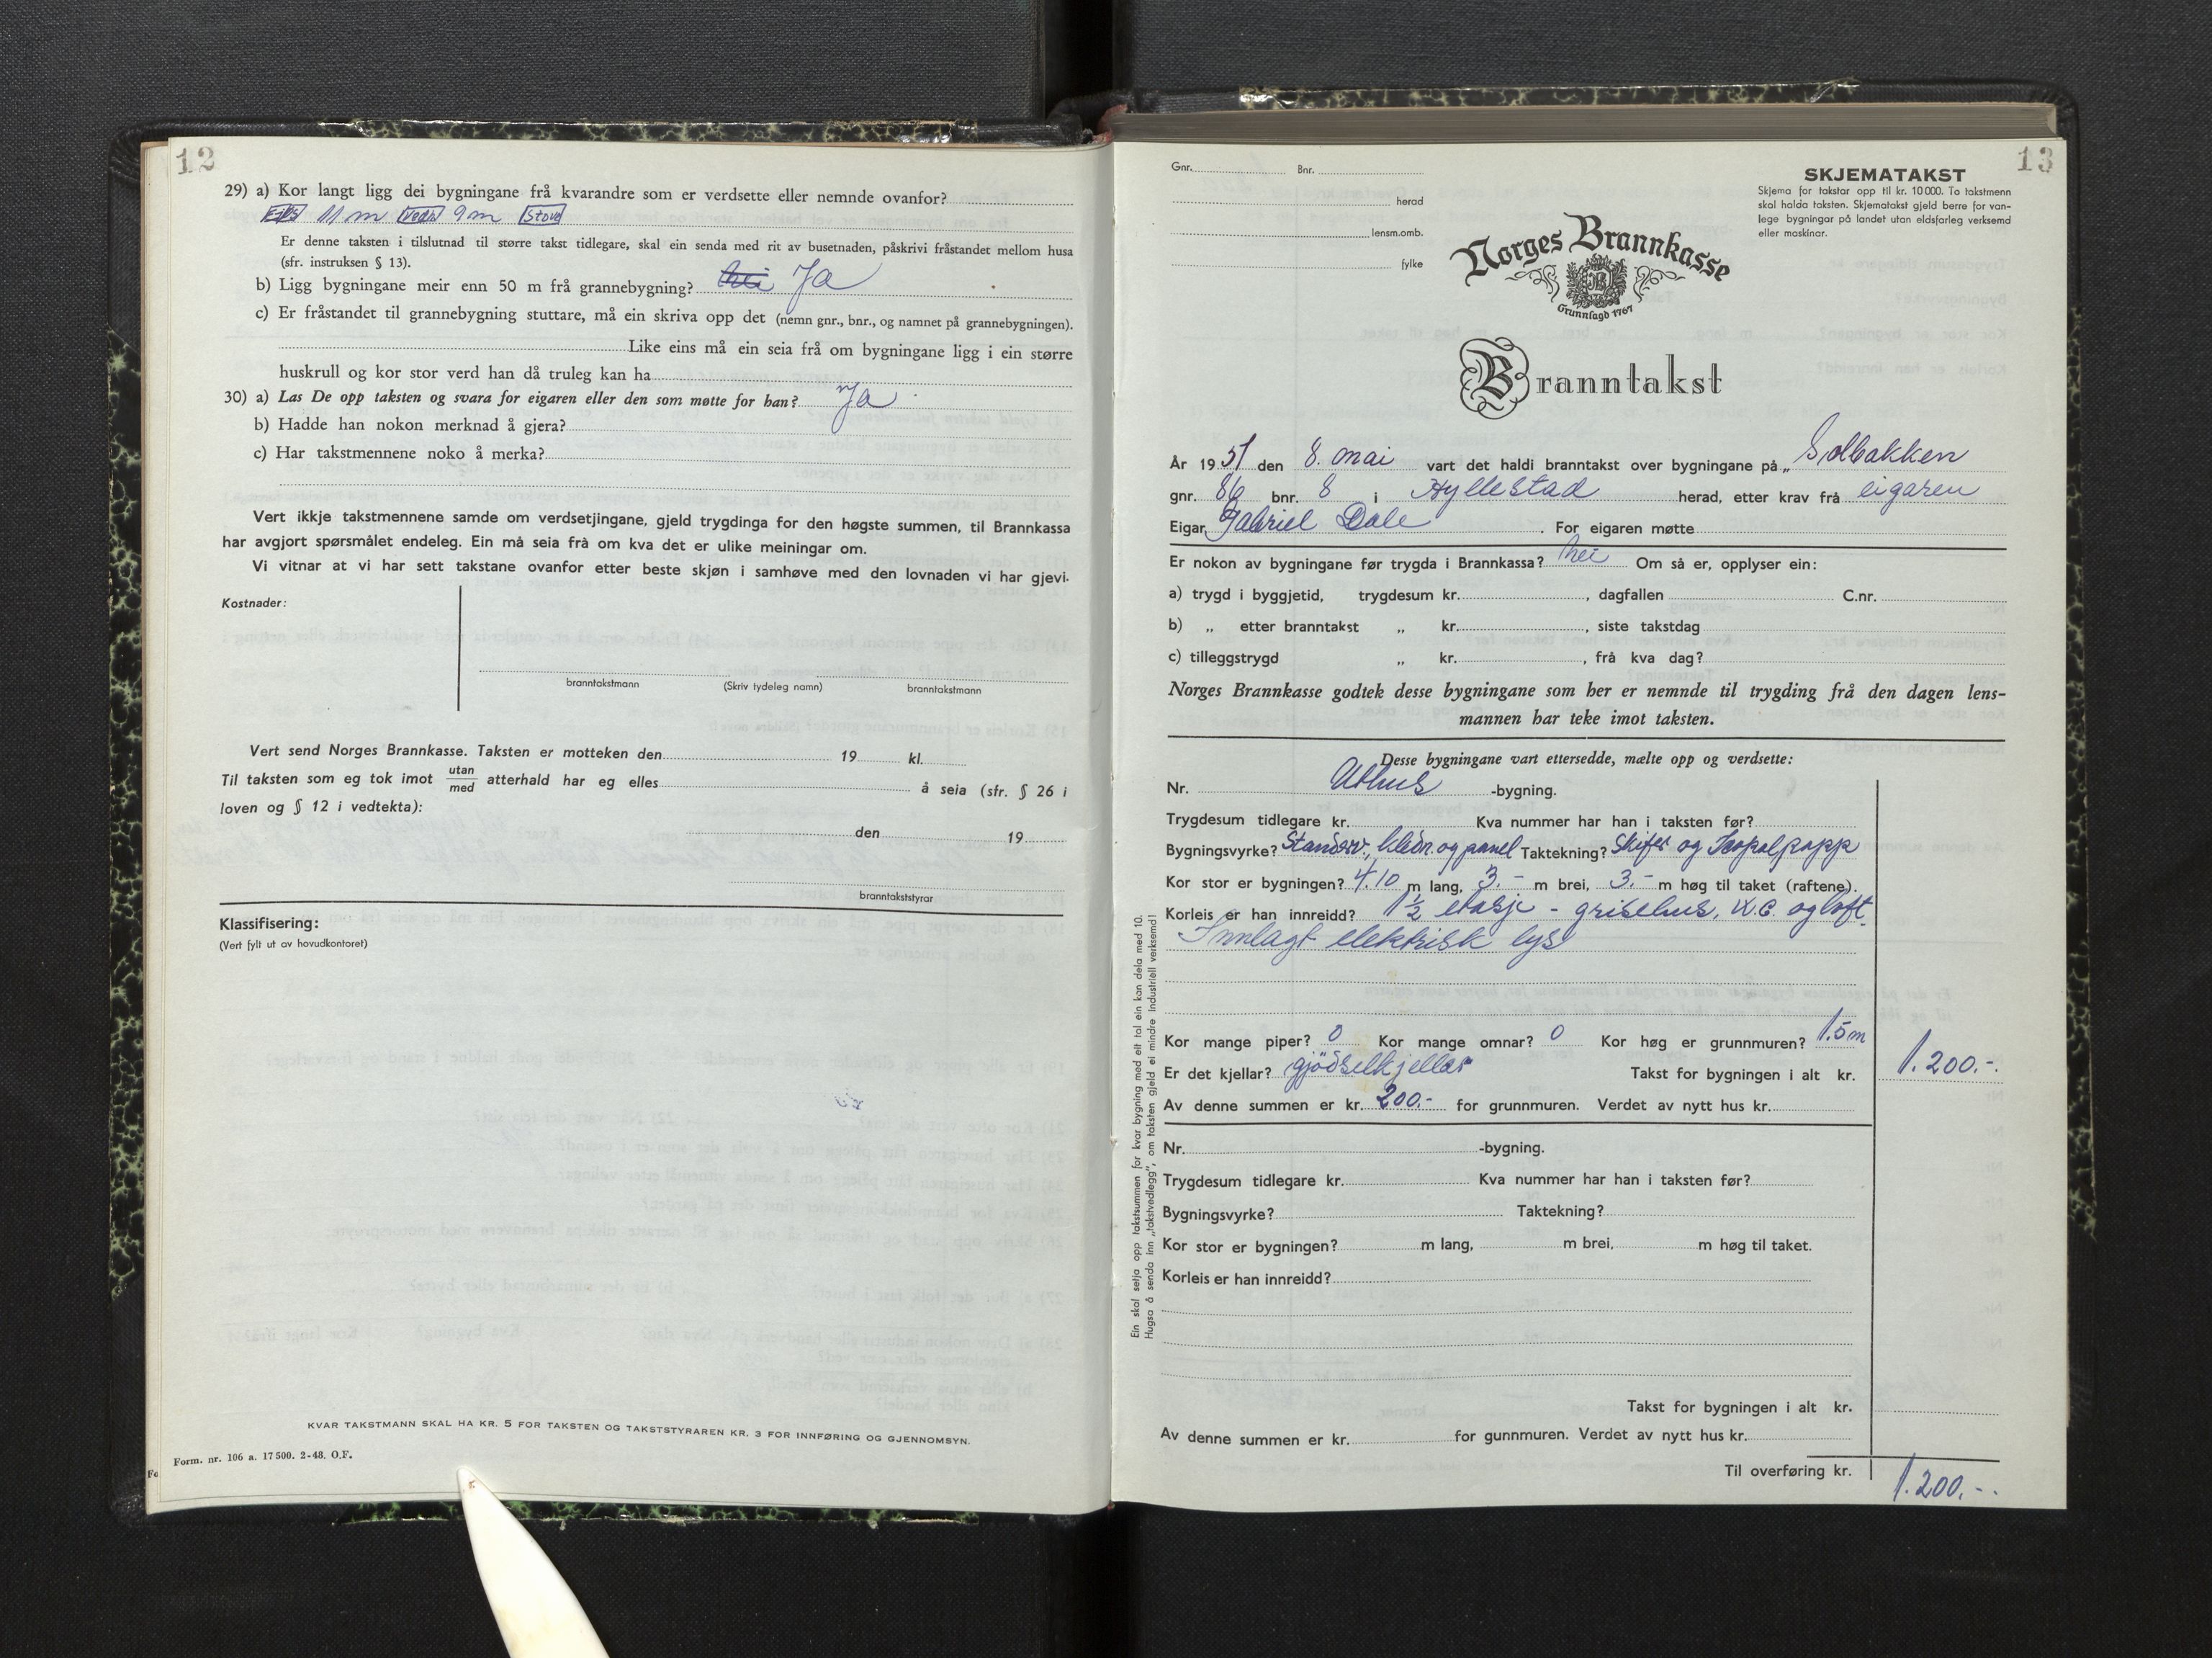 12
29) a) Kor langt ligg dei bygningane frå kvarandre som er verdsette eller nemnde ovanfor?
11 m Vedh 9 m Stove
Er denne taksten i tilslutnad til større takst tidlegare, skal ein senda med rit av busetnaden, påskrivi fråstandet mellom husa
(sfr. instruksen § 13).
b) Ligg bygningane meir enn 50 m frå grannebygning? Ja
c) Er fråstandet til grannebygning stuttare, må ein skriva opp det (nemn gnr., bnr., og namnet på grannebygningen).
Like eins må ein seia frå om bygningane ligg i ein større
huskrull og kor stor verd han då truleg kan ha
30) a) Las De opp taksten og svara for eigaren eller den som møtte for han? Ja
b) Hadde han nokon merknad å gjera?
c) Har takstmennene noko å merka?
Vert ikkje takstmennene samde om verdsetjingane, gjeld trygdinga for den høgste summen, til Brannkassa
har avgjort spørsmålet endeleg. Ein må seia frå om kva det er ulike meiningar om.
Vi vitnar at vi har sett takstane ovanfor etter beste skjøn i samhøve med den lovnaden vi har gjevi.
Kostnader:
branntakstmann (Skriv tydeleg namn) branntakstmann
Vert send Norges Brannkasse. Taksten er motteken den 19 kl.
Til taksten som eg tok imot utan/med atterhald har eg elles å seia (sfr. § 26 i
loven og § 12 i vedtekta):
den 19
branntakststyrar
Klassifisering:
(Vert fylt ut av hovudkontoret)
KVAR TAKSTMANN SKAL HA KR. 5 FOR TAKSTEN OG TAKSTSTYRAREN KR. 3 FOR INNFØRING OG GJENNOMSYN.
Form. nr. 106 a. 17500. 2-48. O.F.
Fo
13
Gnr. Bnr.
herad
lensm.omb.
fylke
SKJEMATAKST
Skjema for takstar opp til kr. 10 000. To takstmenn
skal halda taksten. Skjematakst gjeld berre for van-
lege bygningar på landet utan eldsfarleg verksemd
eller maskinar.
Norges Brannkasse
Grunnlagd 1767
Branntakst
År 1951 den 8. mai vart det haldi branntakst over bygningane på „ Solbakken
gnr. 86 bnr. 8 i Hyllestad herad, etter krav frå eigaren
Eigar Gabriel Dale. For eigaren møtte
Er nokon av bygningane før trygda i Brannkassa? nei Om så er, opplyser ein:
a) trygd i byggjetid, trygdesum kr. , dagfallen C.nr.
b) „ etter branntakst „ kr. , siste takstdag
c) tilleggstrygd „ kr. , frå kva dag?
Norges Brannkasse godtek desse bygningane som her er nemnde til trygding frå den dagen lens-
mannen har teke imot taksten.
Desse bygningane vart ettersedde, mælte opp og verdsette:
Nr. Uthus -bygning.
Trygdesum tidlegare kr. Kva nummer har han i taksten før?
Bygningsvyrke? Standerv., kledn. og panel Taktekning? Skifer og Isopalpapp
Kor stor er bygningen? 4.10 m lang, 3.- m brei, 3.- m høg til taket (raftene).
Korleis er han innreidd? 1 1/2 etasje - grisehus, W.C. og loft.
Innlagt elektrisk lys
Kor mange piper? 0 Kor mange omnar? 0 Kor høg er grunnmuren? 1.5 m
Er det kjellar? gjödselkjellar Takst for bygningen i alt kr. 1.200.-
Av denne summen er kr. 200.- for grunnmuren. Verdet av nytt hus kr.
Nr. -bygning.
Trygdesum tidlegare kr. Kva nummer har han i taksten før?
Bygningsvyrke? Taktekning?
Kor stor er bygningen? m lang, m brei, m høg til taket.
Korleis er han innreidd?
Takst for bygningen i alt kr.
Av denne summen er kr. for gunnmuren. Verdet av nytt hus kr.
Til overføring kr. 1.200.-
Ein skal setja opp takstsummen for kvar bygning med eit tal ein kan dela med 10.
Hugsa å senda inn „takstvedlegg", om taksten gjeld ei mindre industriell verksemd!